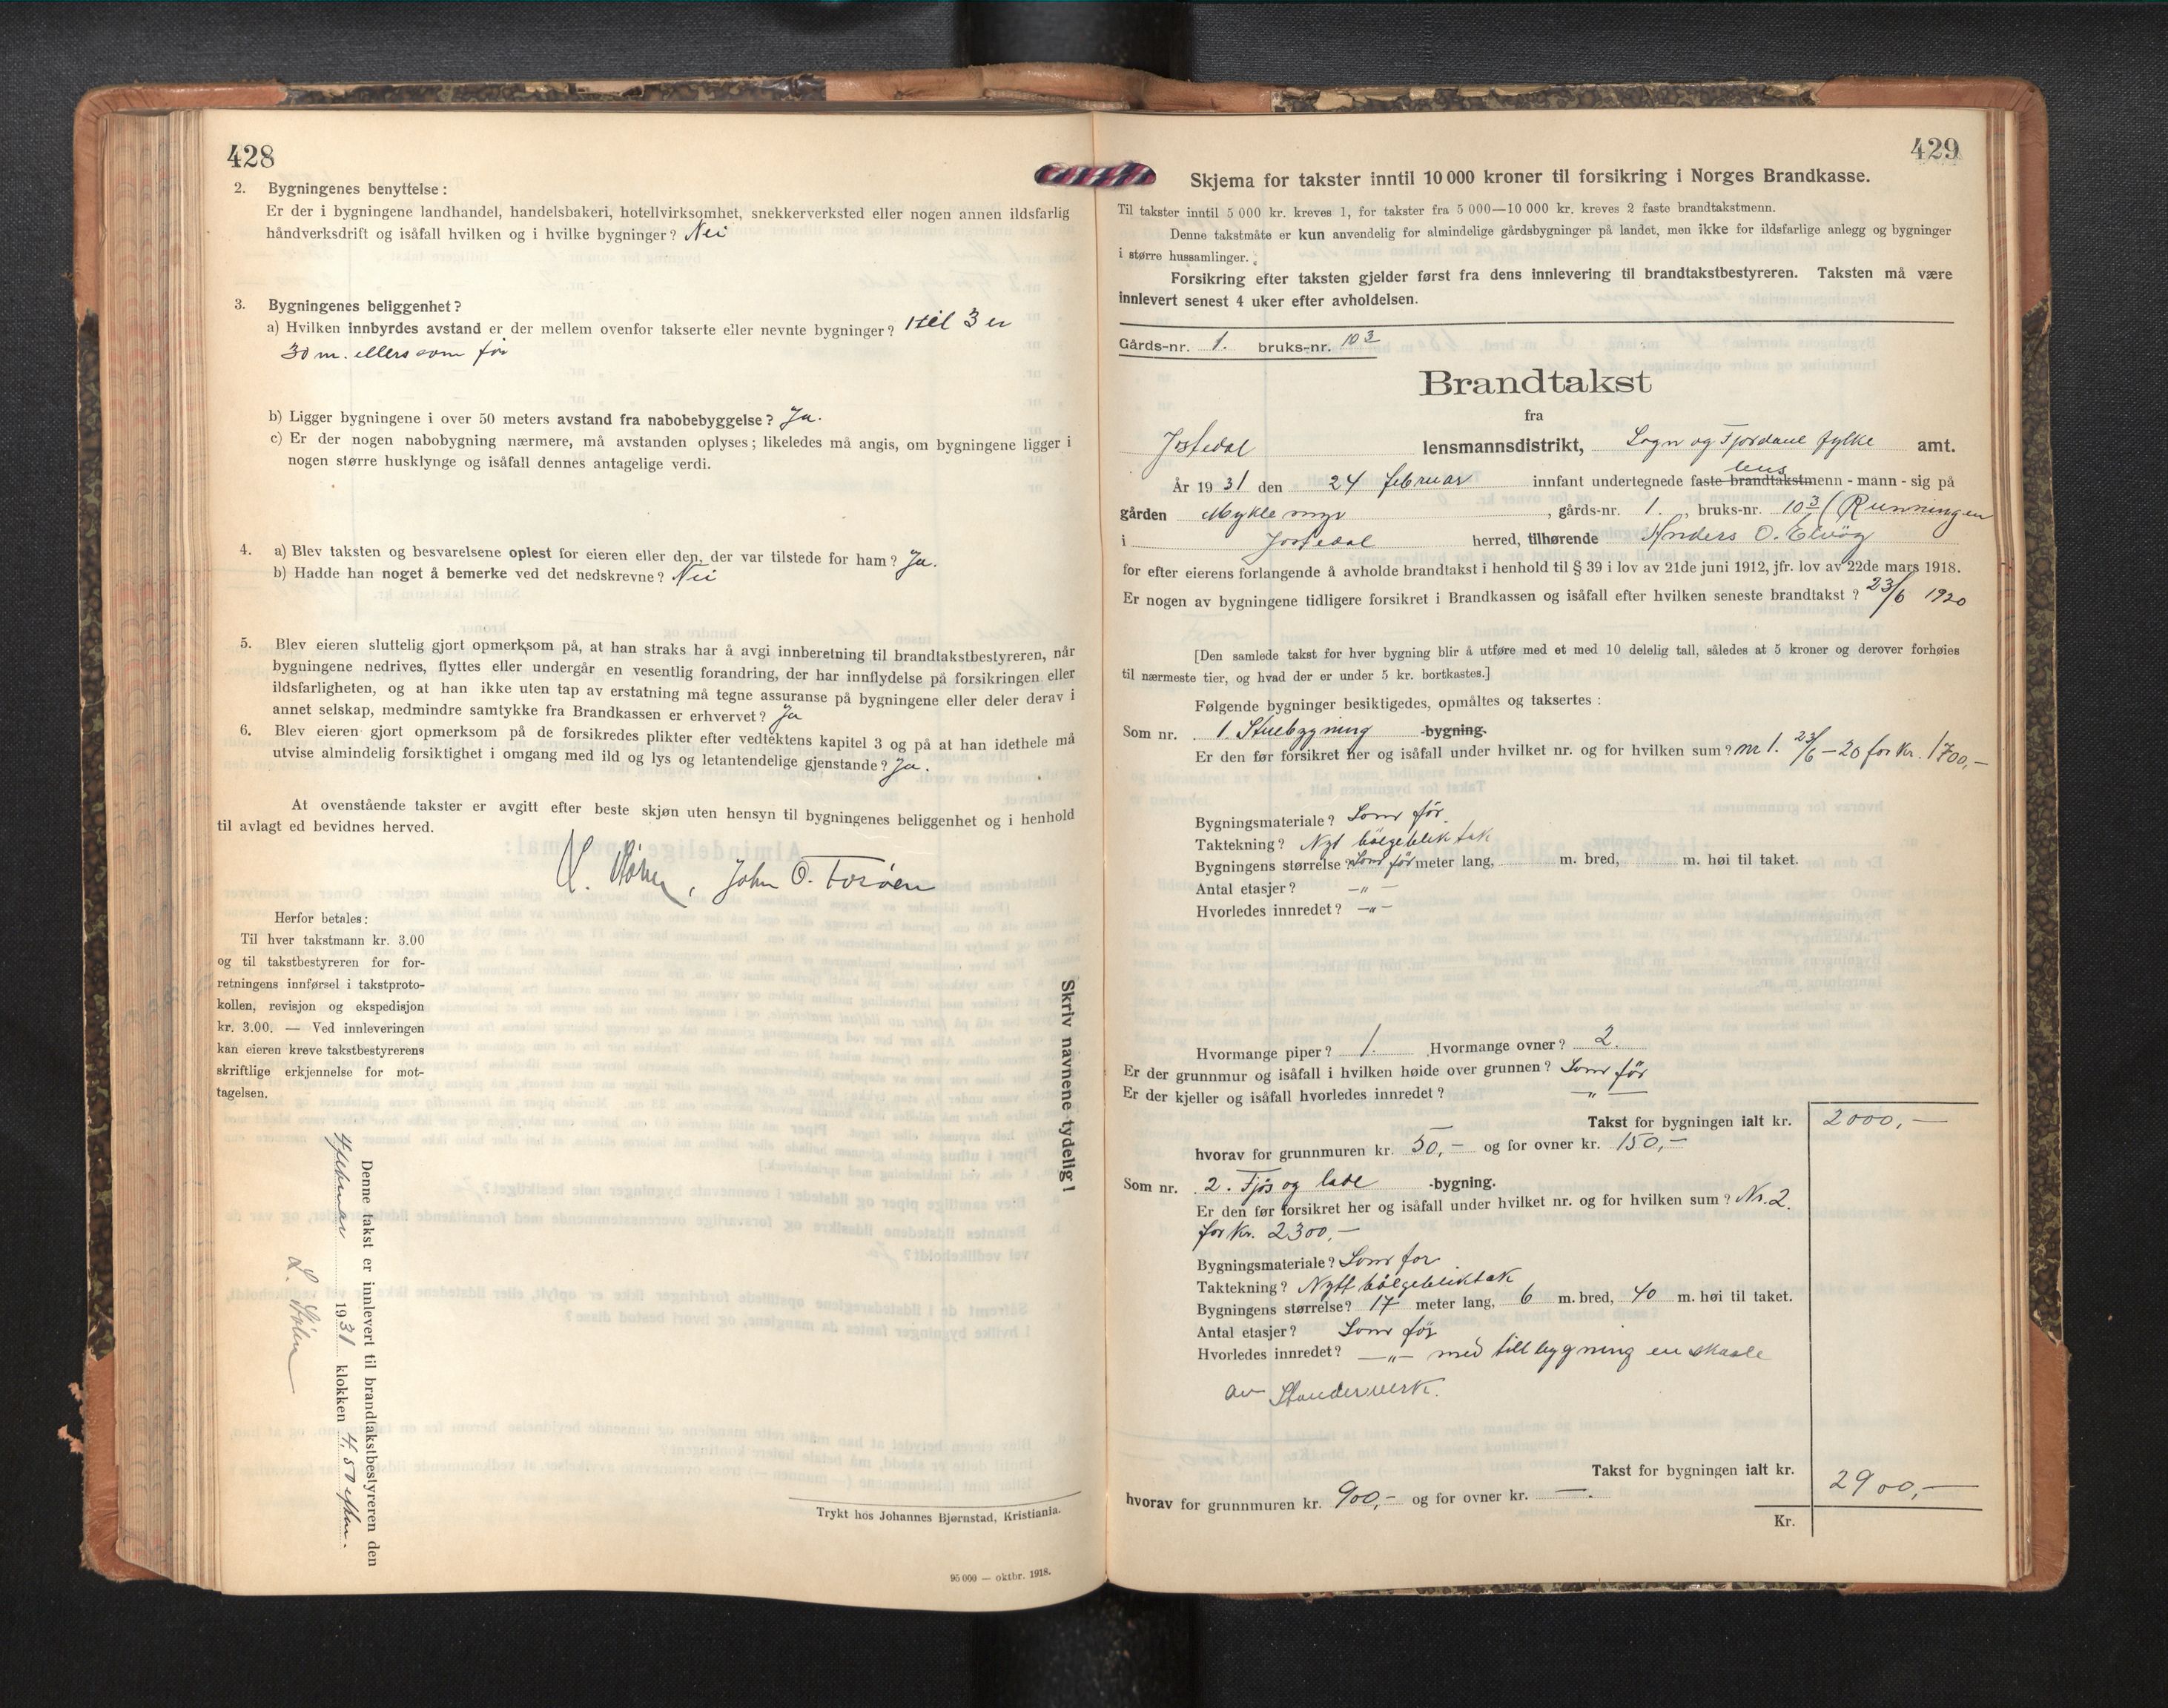 428
2. Bygningenes benyttelse:
Er der i bygningene landhandel, handelsbakeri, hotellvirksomhet, snekkerverksted eller nogen annen ildsfarlig
håndverksdrift og isåfall hvilken og i hvilke bygninger? Nei
3. Bygningenes beliggenhet?
a) Hvilken innbyrdes avstand er der mellem ovenfor takserte eller nevnte bygninger? 1 til 3 er
30 m. ellers som før
b) Ligger bygningene i over 50 meters avstand fra nabobebyggelse? Ja.
c) Er der nogen nabobygning nærmere, må avstanden oplyses; likeledes må angis, om bygningene ligger i
nogen større husklynge og isåfall dennes antagelige verdi.
4. a) Blev taksten og besvarelsene oplest for eieren eller den, der var tilstede for ham? Ja.
b) Hadde han noget å bemerke ved det nedskrevne? Nei
5. Blev eieren sluttelig gjort opmerksom på, at han straks har å avgi innberetning til brandtakstbestyreren, når
bygningene nedrives, flyttes eller undergår en vesentlig forandring, der har innflydelse på forsikringen eller
ildsfarligheten, og at han ikke uten tap av erstatning må tegne assuranse på bygningene eller deler derav i
annet selskap, medmindre samtykke fra Brandkassen er erhvervet? Ja
6. Blev eieren gjort opmerksom på de forsikredes plikter efter vedtektens kapitel 3 og på at han idethele må
utvise almindelig forsiktighet i omgang med ild og lys og letantendelige gjenstande? Ja.
At ovenstående takster er avgitt efter beste skjøn uten hensyn til bygningenes beliggenhet og i henhold
til avlagt ed bevidnes herved.
John O. Forøen
Herfor betales:
Til hver takstmann kr. 3.00
og til takstbestyreren for for-
retningens innførsel i takstproto-
kollen, revisjon og ekspedisjon
kr. 3.00. — Ved innleveringen
kan eieren kreve takstbestyrerens
skriftlige erkjennelse for mot-
tagelsen.
Skriv navnene tydelig!
Denne takst er innlevert til brandtakstbestyreren den
4 februar 1931 klokken 4,50 eftm.
Trykt hos Johannes Bjørnstad, Kristiania.
95 000 — oktbr. 1918.
429
Skjema for takster inntil 10 000 kroner til forsikring i Norges Brandkasse.
Til takster inntil 5 000 kr. kreves 1, for takster fra 5 000—10 000 kr. kreves 2 faste brandtakstmenn.
Denne takstmåte er kun anvendelig for almindelige gårdsbygninger på landet, men ikke for ildsfarlige anlegg og bygninger
i større hussamlinger.
Forsikring efter taksten gjelder først fra dens innlevering til brandtakstbestyreren. Taksten må være
innlevert senest 4 uker efter avholdelsen.
Gårds-nr. 1. bruks-nr. 10 3
Brandtakst
fra
Jostedal lensmannsdistrikt, Sogn og Fjordane fylke amt.
lens
År 1931 den 24 februar innfant undertegnede faste brandtakstmenn - mann - sig på
gården Myklemyr, gårds-nr. 1., bruks-nr. 10 3 (Runningen
i Jostedal herred, tilhørende Anders O. Elvøy
for efter eierens forlangende å avholde brandtakst i henhold til § 39 i lov av 21de juni 1912, jfr. lov av 22de mars 1918.
Er nogen av bygningene tidligere forsikret i Brandkassen og isåfall efter hvilken seneste brandtakst? 23/6 1920
[Den samlede takst for hver bygning blir å utføre med et med 10 delelig tall, således at 5 kroner og derover forhøies
til nærmeste tier, og hvad der er under 5 kr. bortkastes.]
Følgende bygninger besiktigedes, opmåltes og taksertes:
Som nr. 1. Stuebygning -bygning.
Er den før forsikret her og isåfall under hvilket nr. og for hvilken sum? nr 1. 23/6 – 20 for kr. 1700,–
Bygningsmateriale? Som før.
Taktekning? Nyt bölgeblik tak
Bygningens størrelse? Som før meter lang, m. bred, m. høi til taket.
Antal etasjer? –„–
Hvorledes innredet? –„–
Hvormange piper? 1. Hvormange ovner? 2.
Er der grunnmur og isåfall i hvilken høide over grunnen? Som før
Er der kjeller og isåfall hvorledes innredet? –„–
Takst for bygningen ialt kr. 2000,–
hvorav for grunnmuren kr. 50,– og for ovner kr. 150,–
Som nr. 2. Fjös og lade -bygning.
Er den før forsikret her og isåfall under hvilket nr. og for hvilken sum? Nr. 2.
for kr. 2300,–
Bygningsmateriale? Som for
Taktekning? Nytt bölgebliktak
Bygningens størrelse? 17 meter lang, 6 m. bred, 40 m. høi til taket.
Antal etasjer? Som før
Hvorledes innredet? –„– med tillbygning en skaale
av Standerverk.
Takst for bygningen ialt kr. 2900,–
hvorav for grunnmuren kr. 900,– og for ovner kr. —.
Kr.